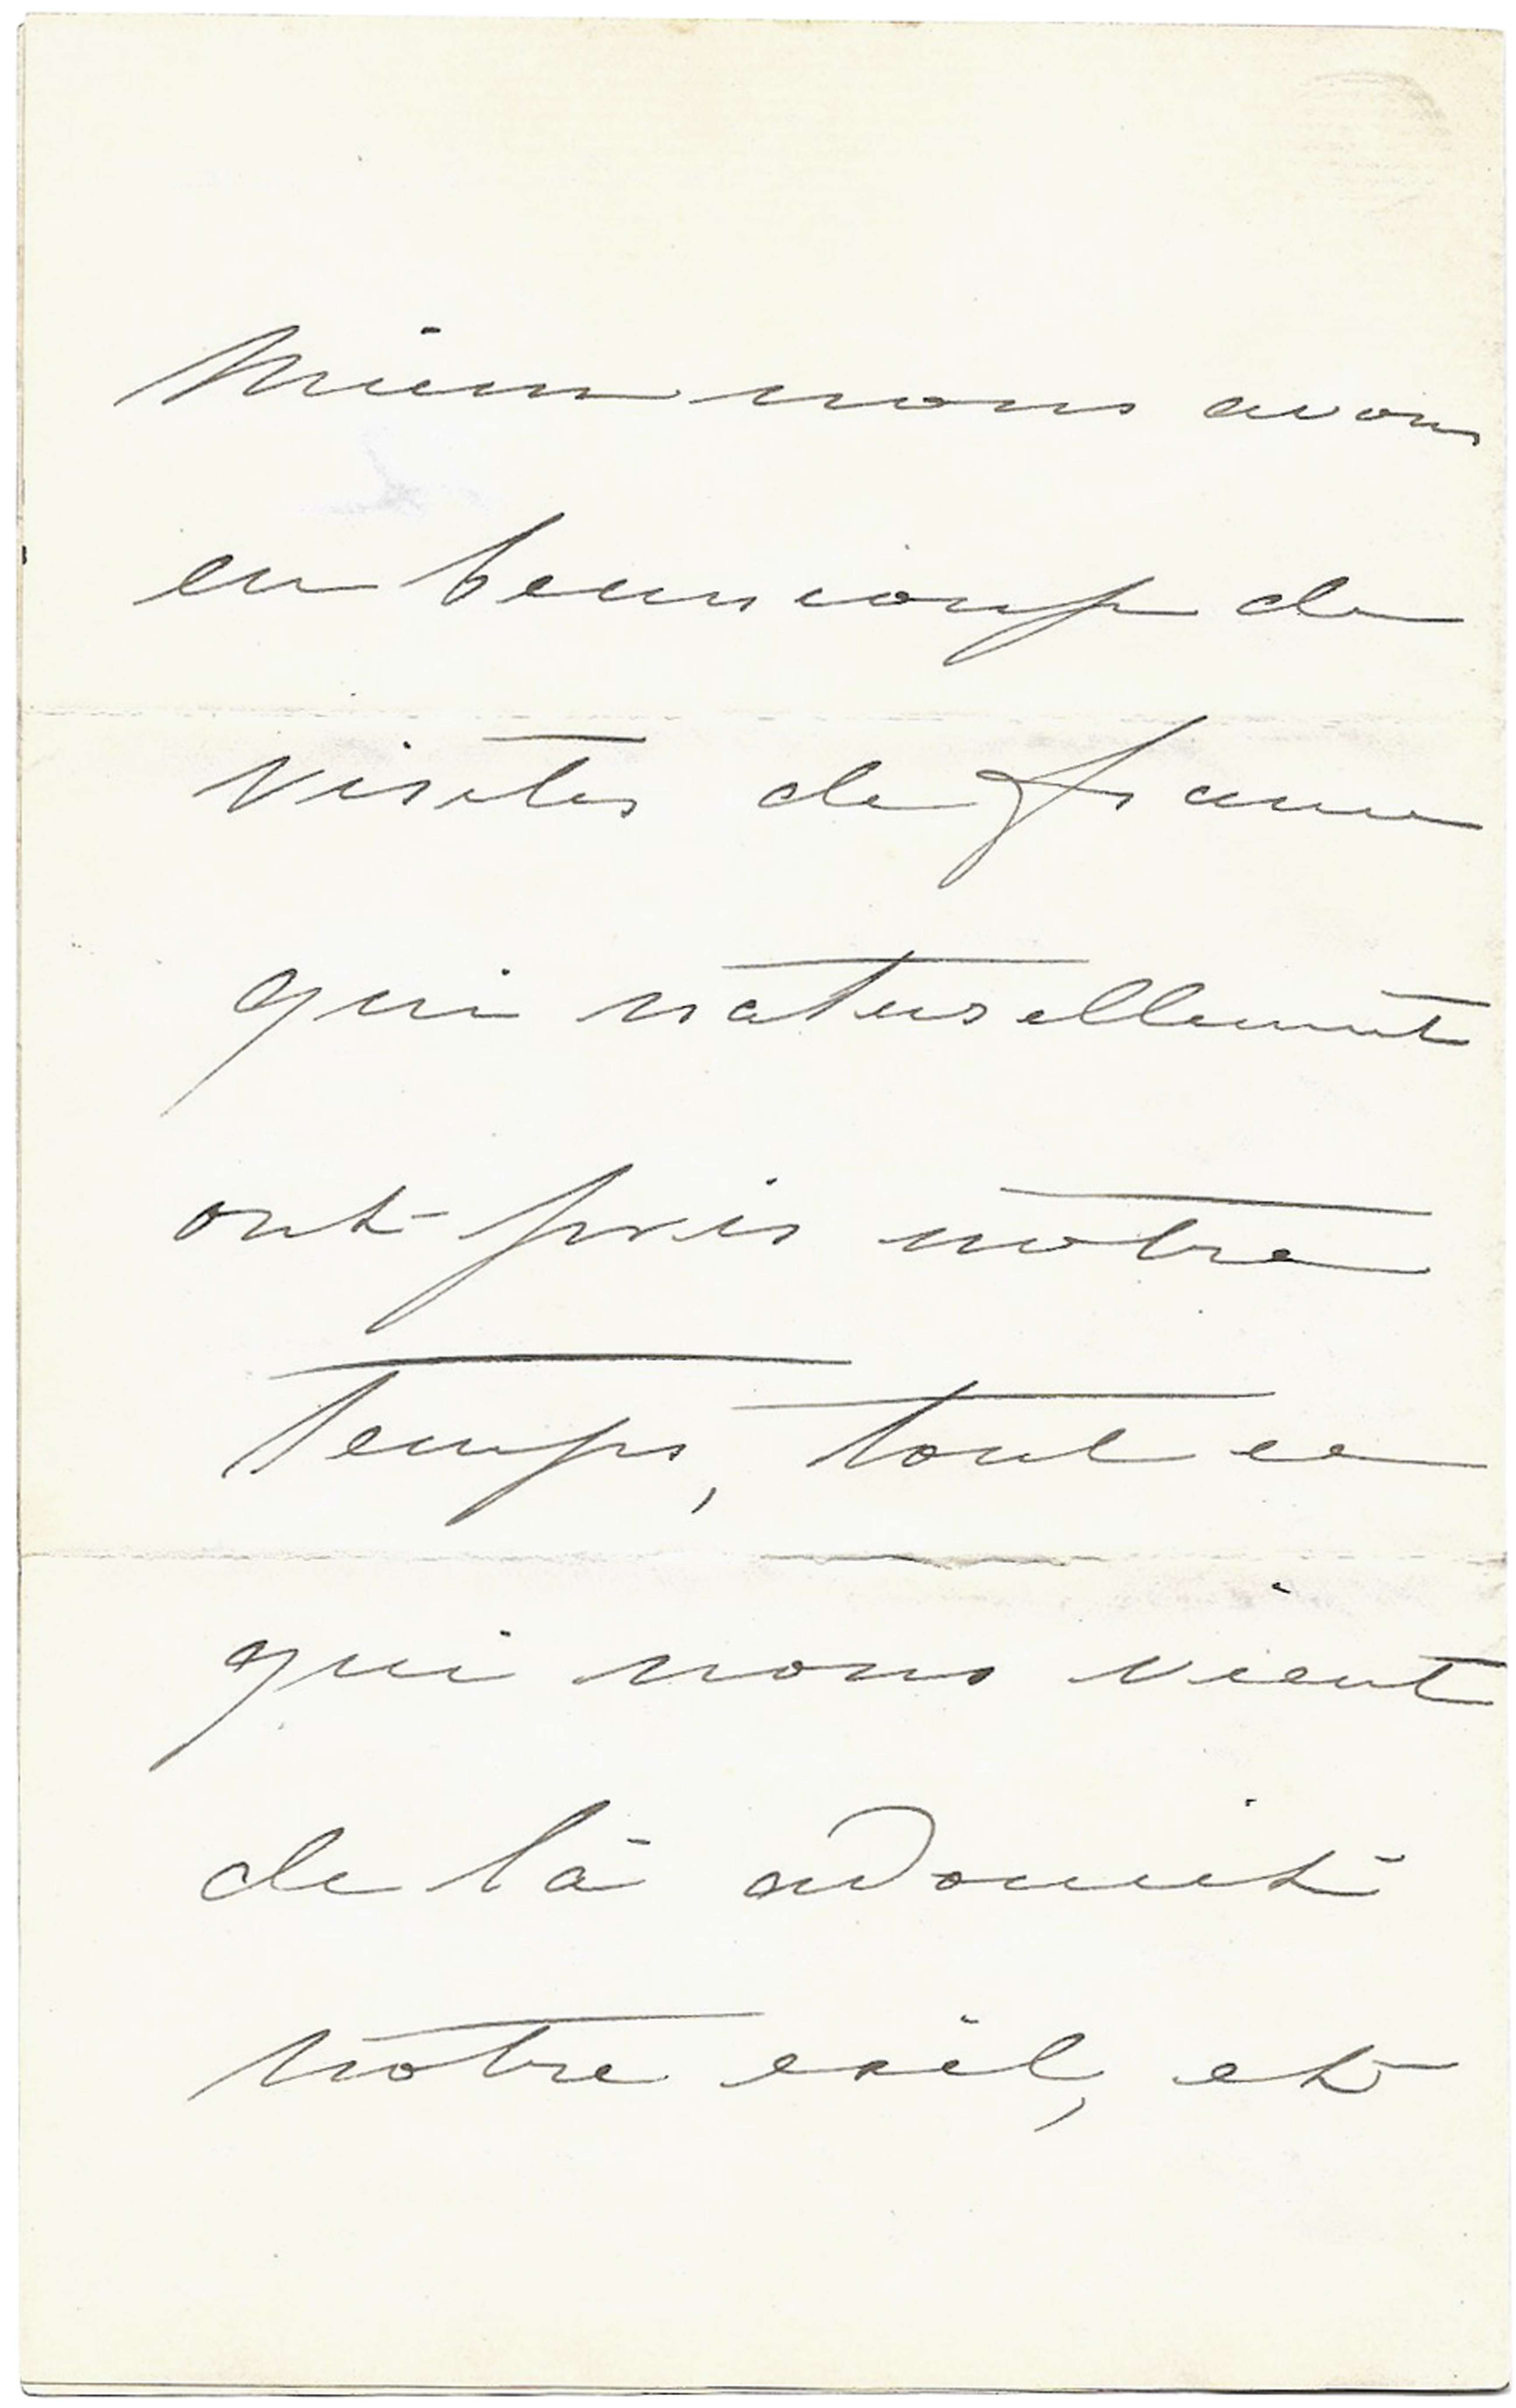 mieux nous avons
eu beaucoup de
visites de france
qui naturellement
ont pris notre
Temps, tout ce
qui nous vient
de là adoucit
notre exil, et